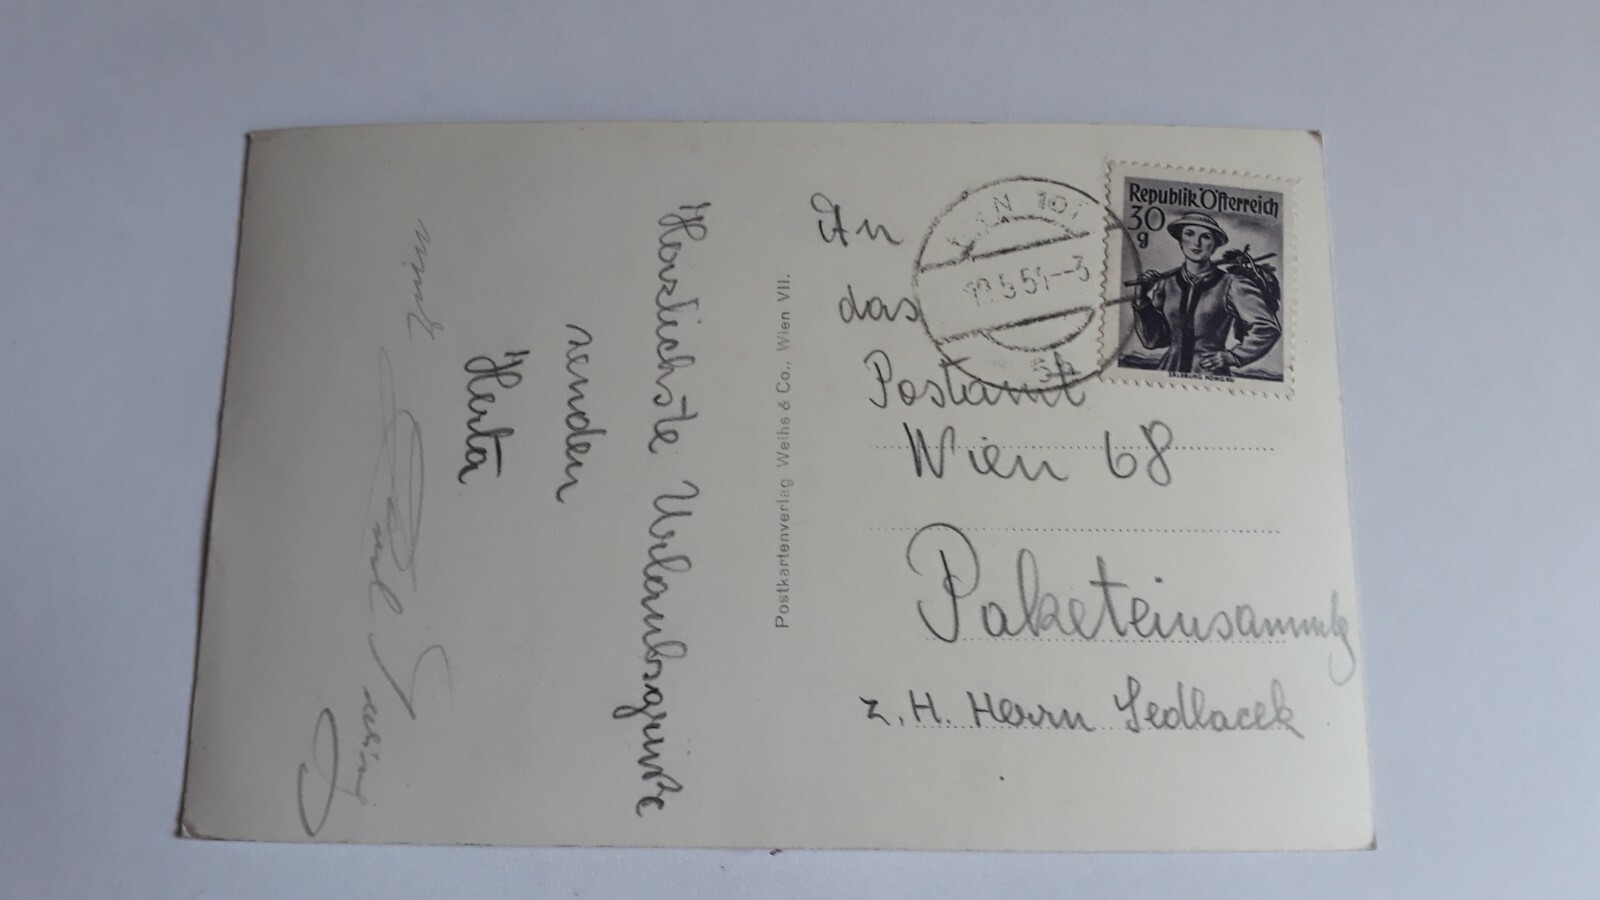 Herzlichste Urlaubsgrüße
senden
Herta
und
Postkartenverlag Weihs & Co., Wien VII.
Republik Österreich
30
g
SALZBURG PONGAU
An
das
Postamt
Wien 68
Paketeinsammlg
z. H. Herrn Sedlacek